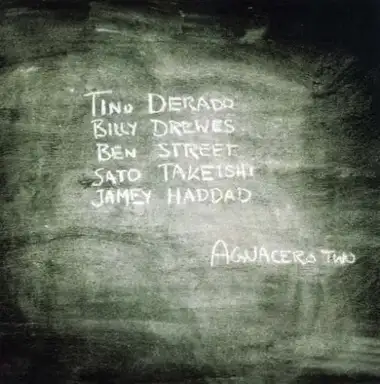 TINO DERADO
BILLY DREWES
BEN STREET
SATO TAKEISHI
JAMEY HADDAD
AGUACERO TWO